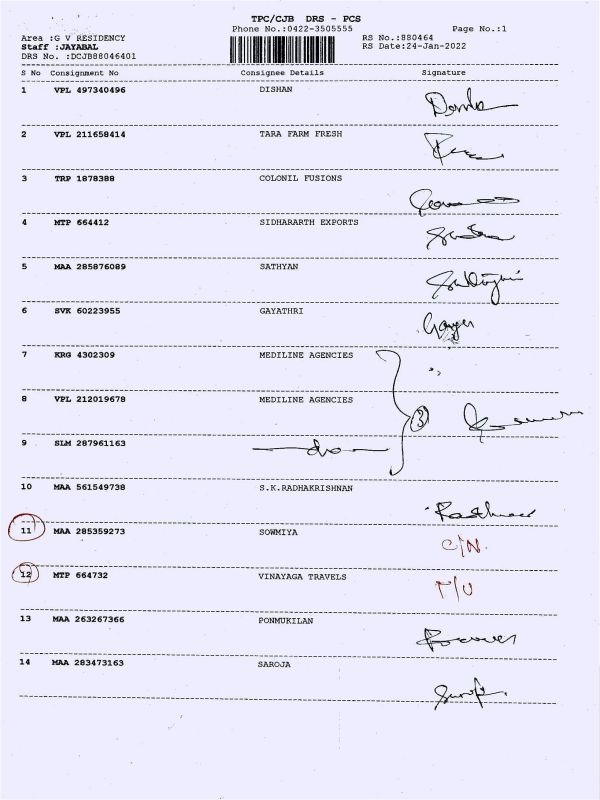 TPC/CJB DRS - PCS
Phone No.:0422-3505555 Page No.:1
Area :G V RESIDENCY RS No.:880464
Staff :JAYABAL RS Date:24-Jan-2022
DRS No. :DCJB88046401
S No Consignment No Consignee Details Signature
1 VPL 497340496 DISHAN
2 VPL 211658414 TARA FARM FRESH
3 TRP 1878388 COLONIL FUSIONS
4 MTP 664412 SIDHARARTH EXPORTS
5 MAA 285876089 SATHYAN
6 SVK 60223955 GAYATHRI
7 KRG 4302309 MEDILINE AGENCIES
8 VPL 212019678 MEDILINE AGENCIES 3
9 SLM 287961163 do
10 MAA 561549738 S.K.RADHAKRISHNAN
11 MAA 285359273 SOWMIYA C/N.
12 MTP 664732 VINAYAGA TRAVELS
13 MAA 263267366 PONMUKILAN
14 MAA 283473163 SAROJA